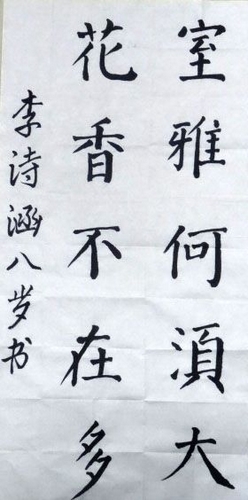 室雅何須大
花香不在多
李诗涵八岁书